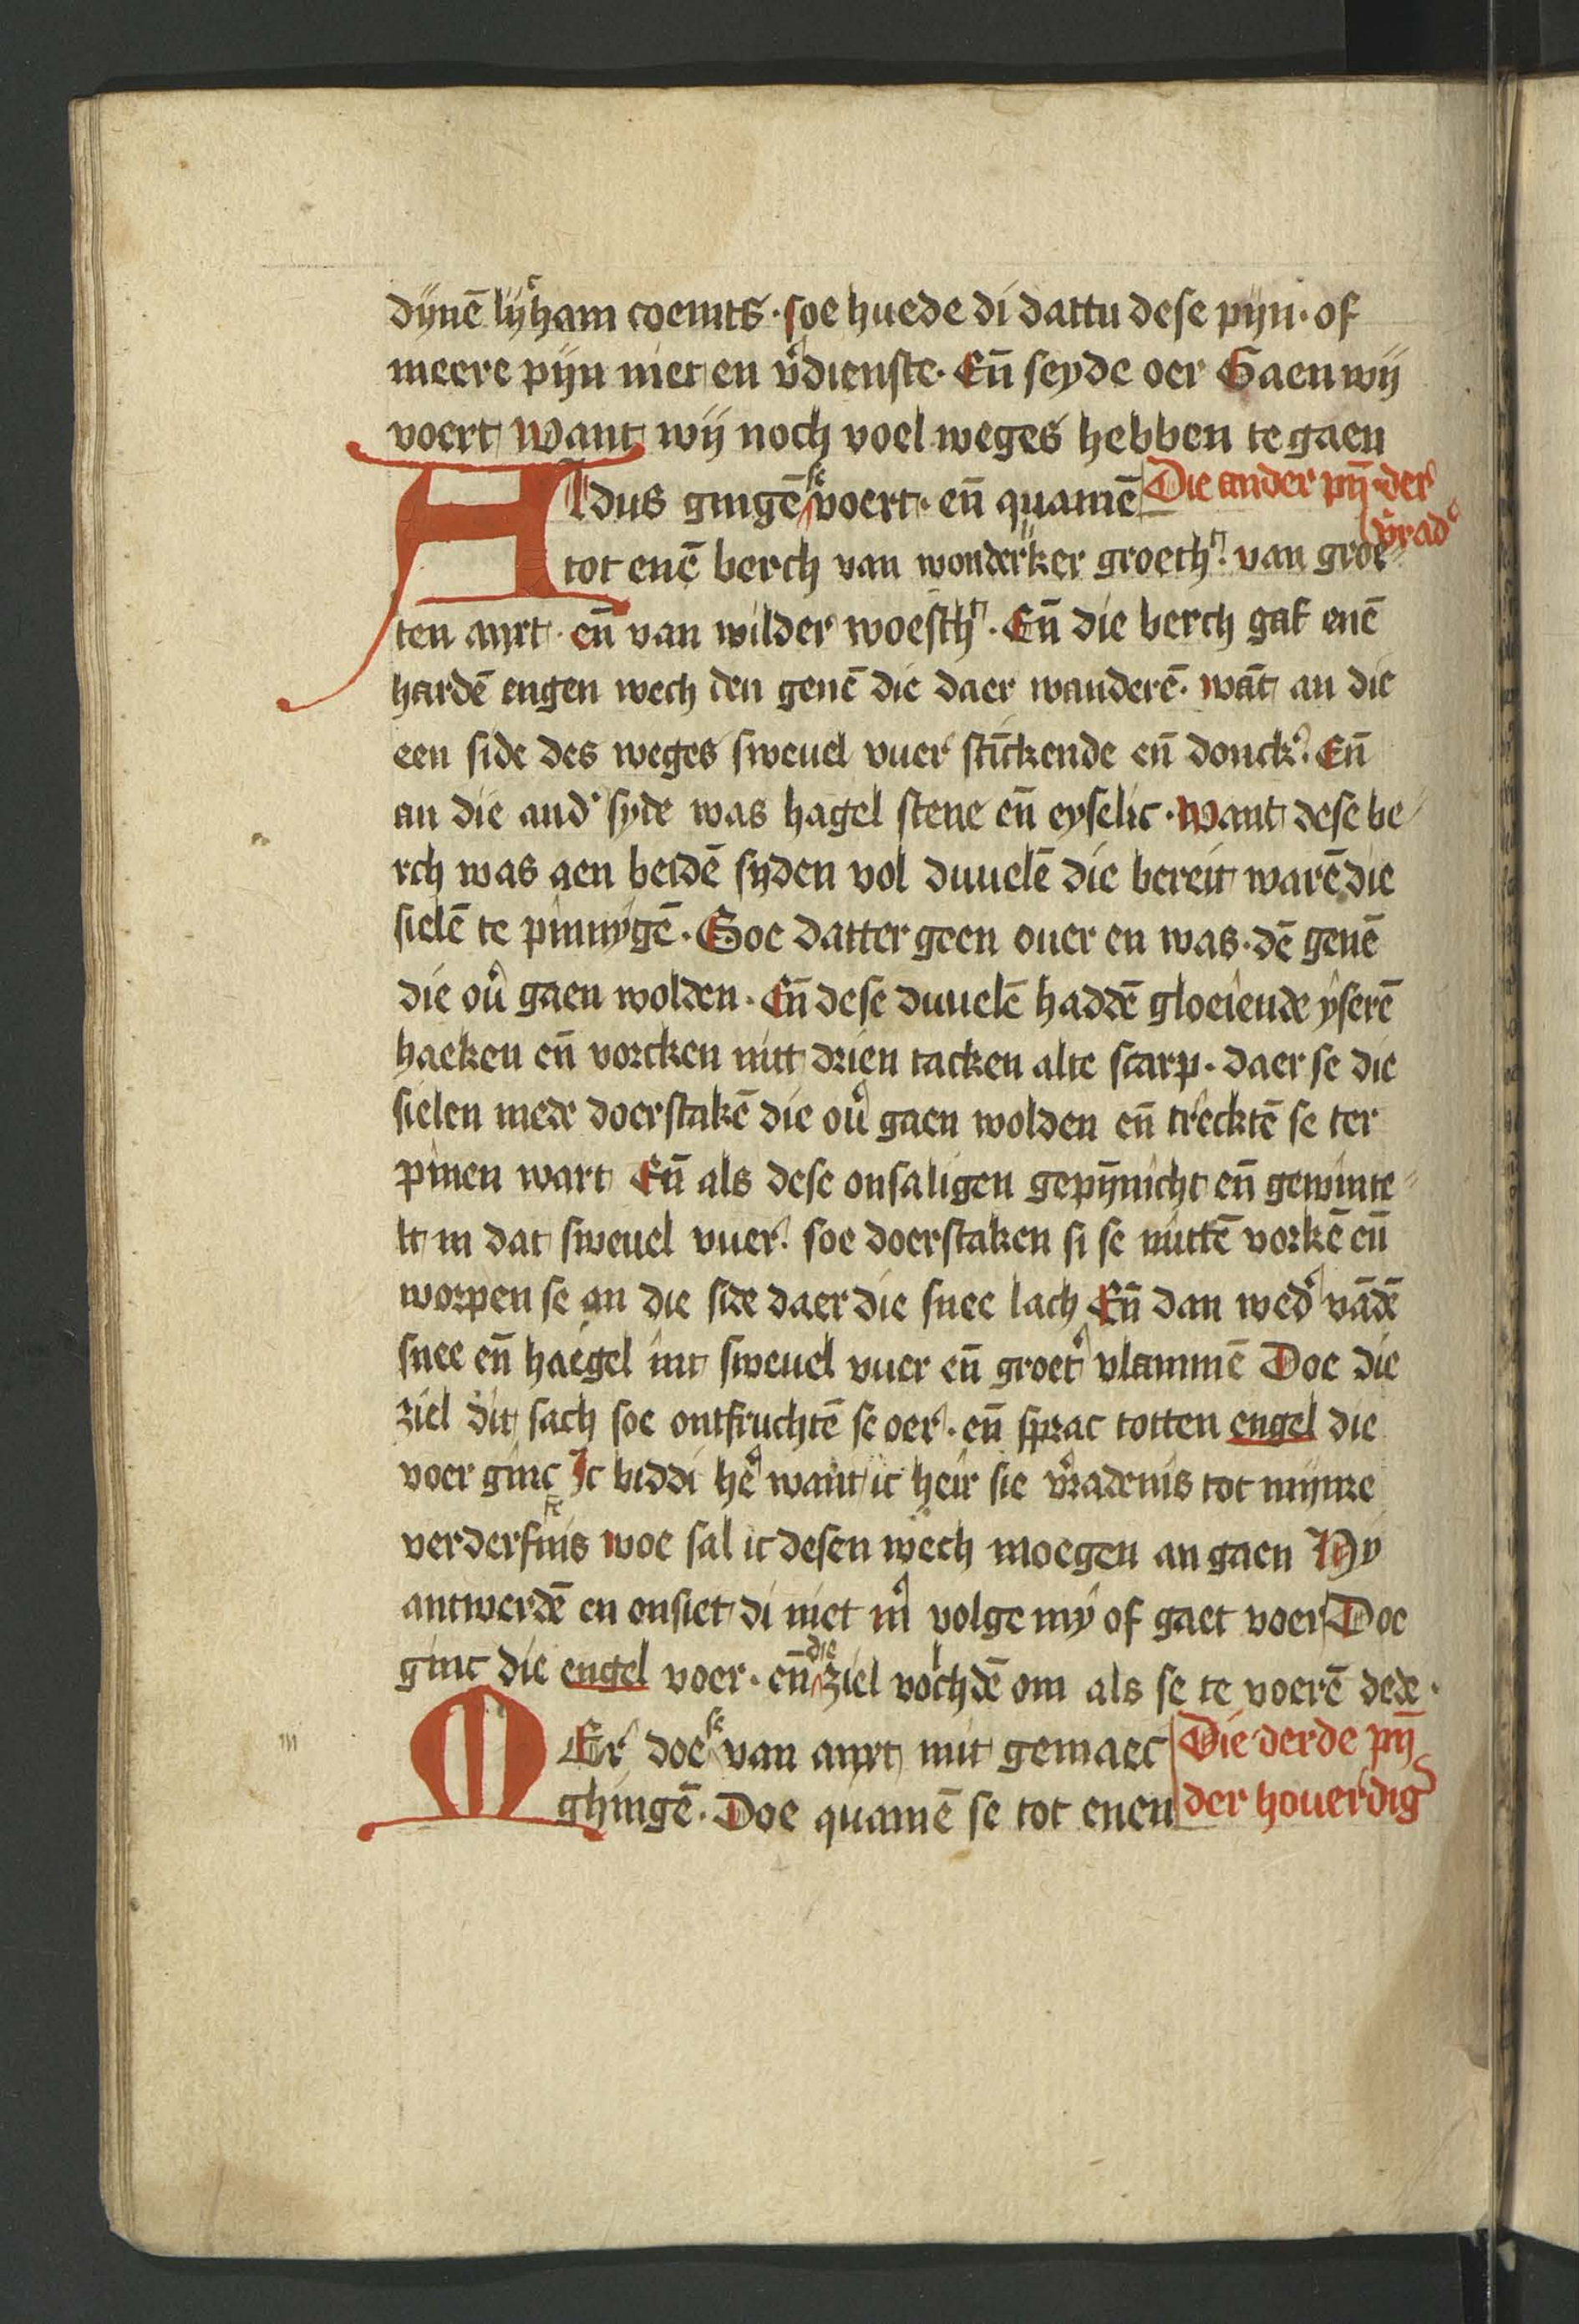 dijnē lijcham coemts · soe huede di dattu dese pijn · of
meere pijn niet en v̉dienste · Eñ seyde oer Gaen wij
voert want wij noch voel weges hebben te gaen
Aldus gingē se voert · eñ quamē Die ander pijn̄ der
v̉rad
tot enē berch van wonderlker groeth · van groe-
ten anxt · eñ van wilder woesth · Eñ die berch gaf enē
hardē engen wech den genē die daer wanderē · wāt an die
een side des weges sweuel vuer stinckende eñ donck · Eñ
an die and syde was hagel stene eñ eyselic · want dese be-
rch was aen beidē syden vol duuelē die bereit warē die
sielē te pinnygē · Soe datter geen ouer en was · dē genē
die oủ gaen wolden · Eñ dese duuelē haddē gloeiende yserē
haeken eñ vorcken mit drien tacken alte scarp · daer se die
sielen mede doerstakē die oủ gaen wolden eñ trecktē se ter
pinen wart Eñ als dese onsaligen gepȳnicht eñ gewinte-
lt in dat sweuel vuer · soe doerstaken si se mittē vorkē eñ
worpen se an die side daer die snee lach Eñ dan wed̉ vādē
snee eñ haegel int sweuel vuer eñ groet̉ vlammē Doe die
ziel dit sach soe ontfruchtē se oer · eñ sprac totten engel die
voer ginc Ic biddi hē̉ want ic heir sie v̉radenis tot mijnre
verderfnis woe sal ic desen wech moegen an gaen Hy
antwerdē en onsiet di niet m̉ volge my of gaet voer Doe
ginc die engel voer · eñ die ziel volchdē om als se te voerē dede ·
MEr doe se van anxt mit gemaec Die derde pijn̄
ghingē · Doe quamē se tot enen der houerdig